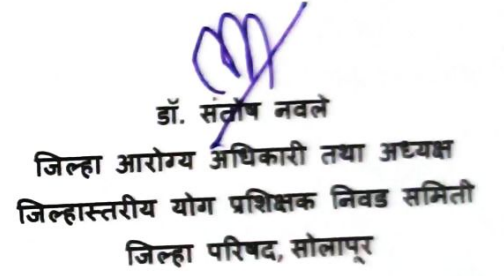 डॉ. संतोष नवले
जिल्हा आरोग्य अधिकारी तथा अध्यक्ष
जिल्हास्तरीय योग प्रशिक्षक निवड समिती
जिल्हा परिषद, सोलापूर